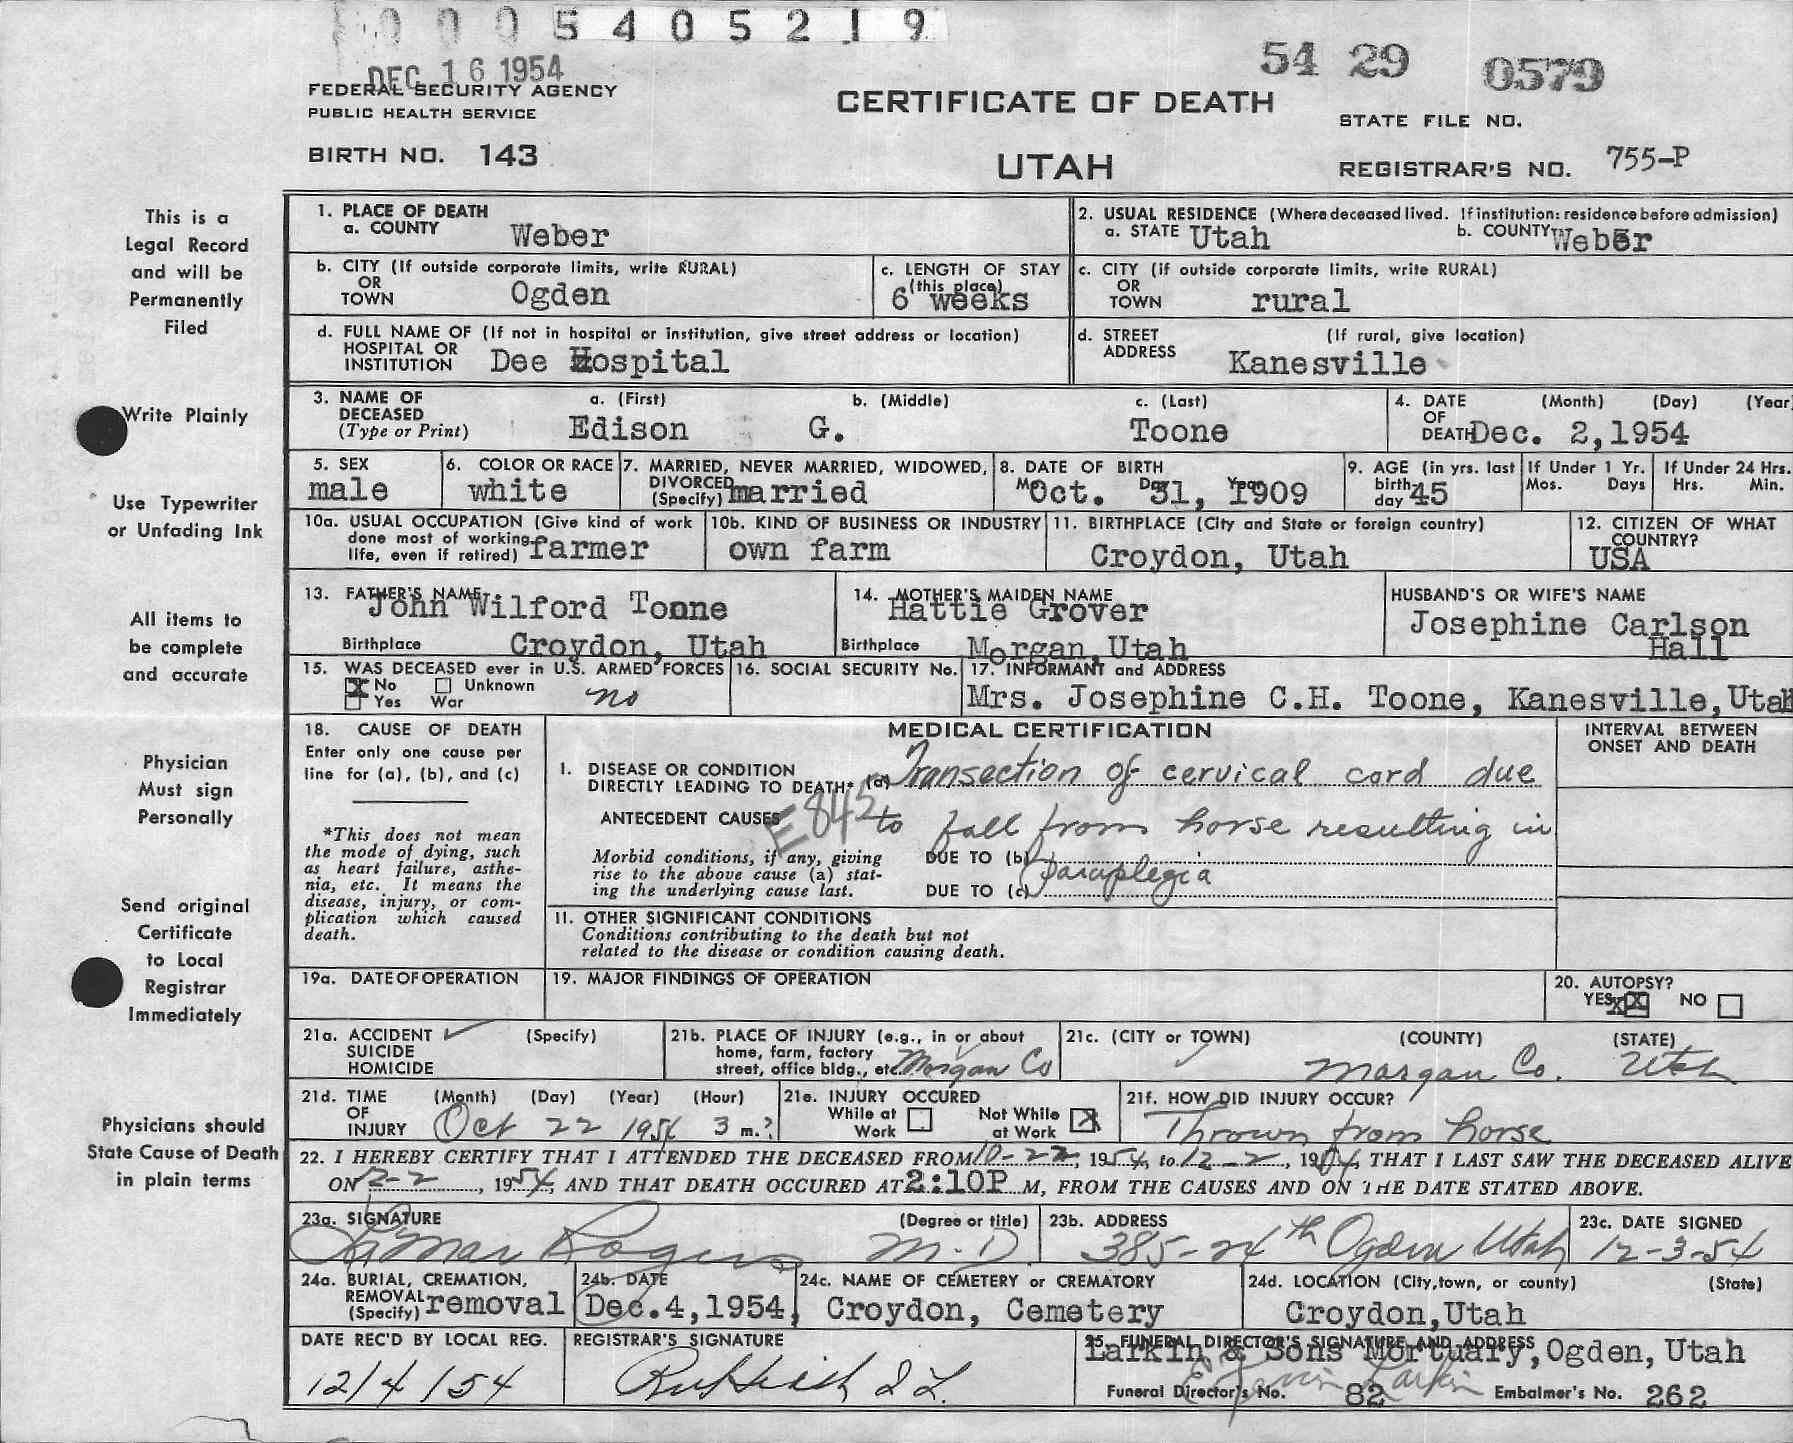 0 0 0 5 4 0 5 2 1 9
DEC 16 1954
54 29 0579
FEDERAL SECURITY AGENCY
PUBLIC HEALTH SERVICE
CERTIFICATE OF DEATH
STATE FILE NO.
BIRTH NO. 143
UTAH
REGISTRAR'S NO. 755-P
This is a
Legal Record
and will be
Permanently
Filed
Write Plainly
Use Typewriter
or Unfading Ink
All items to
be complete
and accurate
Physician
Must sign
Personally
Send original
Certificate
to Local
Registrar
Immediately
Physicians should
State Cause of Death
in plain terms
1. PLACE OF DEATH
a. COUNTY Weber
2. USUAL RESIDENCE (Where deceased lived. If institution: residence before admission)
a. STATE Utah b. COUNTY Weber
b. CITY (If outside corporate limits, write RURAL)
OR
TOWN Ogden
c. LENGTH OF STAY
(this place)
6 weeks
c. CITY (if outside corporate limits, write RURAL)
OR
TOWN rural
d. FULL NAME OF (If not in hospital or institution, give street address or location)
HOSPITAL OR
INSTITUTION Dee Hospital
d. STREET (If rural, give location)
ADDRESS Kanesville
3. NAME OF a. (First) b. (Middle) c. (Last)
DECEASED
(Type or Print) Edison G. Toone
4. DATE (Month) (Day) (Year
OF
DEATH Dec. 2,1954
5. SEX
male
6. COLOR OR RACE
white
7. MARRIED, NEVER MARRIED, WIDOWED,
DIVORCED
(Specify) married
8. DATE OF BIRTH
Oct. 31, 1909
9. AGE (in yrs. last
birth-
day 45
If Under 1 Yr.
Mos. Days
If Under 24 Hrs.
Hrs. Min.
10a. USUAL OCCUPATION (Give kind of work
done most of working
life, even if retired) farmer
10b. KIND OF BUSINESS OR INDUSTRY
own farm
11. BIRTHPLACE (City and State or foreign country)
Croydon, Utah
12. CITIZEN OF WHAT
COUNTRY?
USA
13. FATHER'S NAME
John Wilford Toone
Birthplace Croydon, Utah
14. MOTHER'S MAIDEN NAME
Hattie Grover
Birthplace Morgan,Utah
HUSBAND'S OR WIFE'S NAME
Josephine Carlson
Hall
15. WAS DECEASED ever in U.S. ARMED FORCES
x No Unknown
Yes War no
16. SOCIAL SECURITY No.
17. INFORMANT and ADDRESS
Mrs. Josephine C.H. Toone, Kanesville,Utah
18. CAUSE OF DEATH
Enter only one cause per
line for (a), (b), and (c)
*This does not mean
the mode of dying, such
as heart failure, asthe-
nia, etc. It means the
disease, injury, or com-
plication which caused
death.
MEDICAL CERTIFICATION
INTERVAL BETWEEN
ONSET AND DEATH
I. DISEASE OR CONDITION
DIRECTLY LEADING TO DEATH* (a) Transection of cervical cord due
ANTECEDENT CAUSES E845 to fall from horse resulting in
Morbid conditions, if any, giving
rise to the above cause (a) stat-
ing the underlying cause last.
DUE TO (b)
DUE TO (c) paraplegia
II. OTHER SIGNIFICANT CONDITIONS
Conditions contributing to the death but not
related to the disease or condition causing death.
19a. DATE OF OPERATION
19. MAJOR FINDINGS OF OPERATION
20. AUTOPSY?
YES x NO
21a. ACCIDENT ✓ (Specify)
SUICIDE
HOMICIDE
21b. PLACE OF INJURY (e.g., in or about
home, farm, factory
street, office bldg., etc. Morgan Co
21c. (CITY or TOWN) (COUNTY) (STATE)
Morgan Co. Utah
21d. TIME (Month) (Day) (Year) (Hour)
OF
INJURY Oct 22 1954 3 m.?
21e. INJURY OCCURED
While at
Work
Not While
at Work x
21f. HOW DID INJURY OCCUR?
Thrown from horse
22. I HEREBY CERTIFY THAT I ATTENDED THE DECEASED FROM 10-22, 1954, to 12-2, 1954, THAT I LAST SAW THE DECEASED ALIVE
ON 12-2, 1954, AND THAT DEATH OCCURED AT 2:10P M, FROM THE CAUSES AND ON THE DATE STATED ABOVE.
23a. SIGNATURE (Degree or title)
Rogers M.D.
23b. ADDRESS
385-24th Ogden Utah
23c. DATE SIGNED
12-3-54
24a. BURIAL, CREMATION,
REMOVAL
(Specify) removal
24b. DATE
Dec.4,1954,
24c. NAME OF CEMETERY or CREMATORY
Croydon, Cemetery
24d. LOCATION (City,town, or county) (State)
Croydon,Utah
DATE REC'D BY LOCAL REG.
12/4/54
REGISTRAR'S SIGNATURE
25. FUNERAL DIRECTOR'S SIGNATURE AND ADDRESS
Larkin & Sons Mortuary,Ogden, Utah
Larkin
Funeral Director's No. 82 Embalmer's No. 262